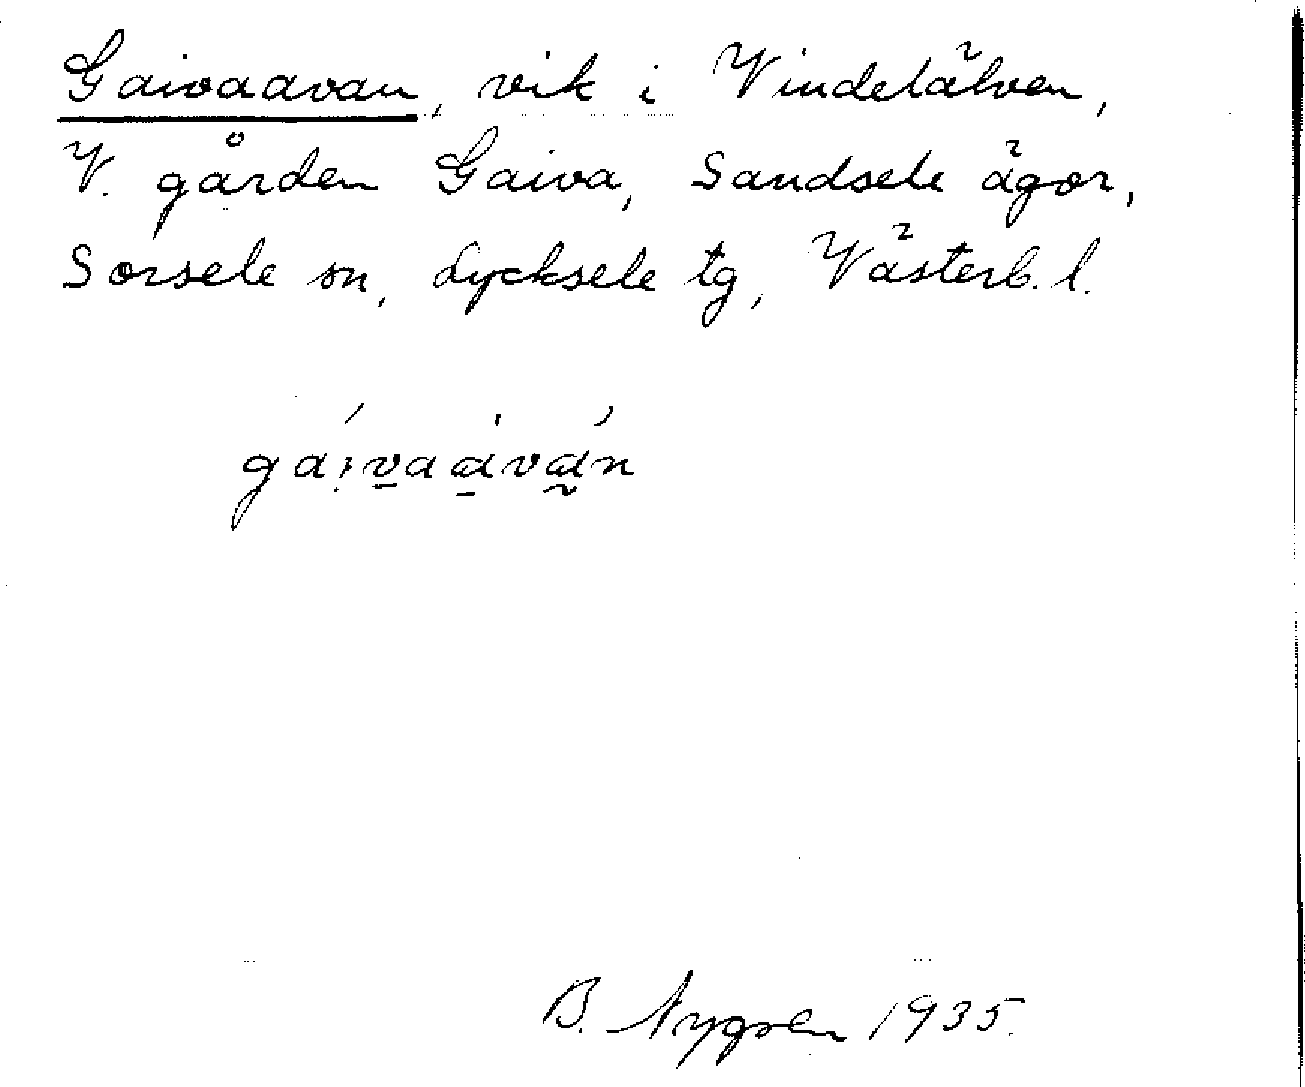 Gaivaavan, vik i Vindelälven,
V. gården Gaiva, Sandsele ägor,
Sorsele sn, Lycksele tg, Västerb. l.
gái̯v̲aa̲̍vá̰n
B. Nygren 1935.